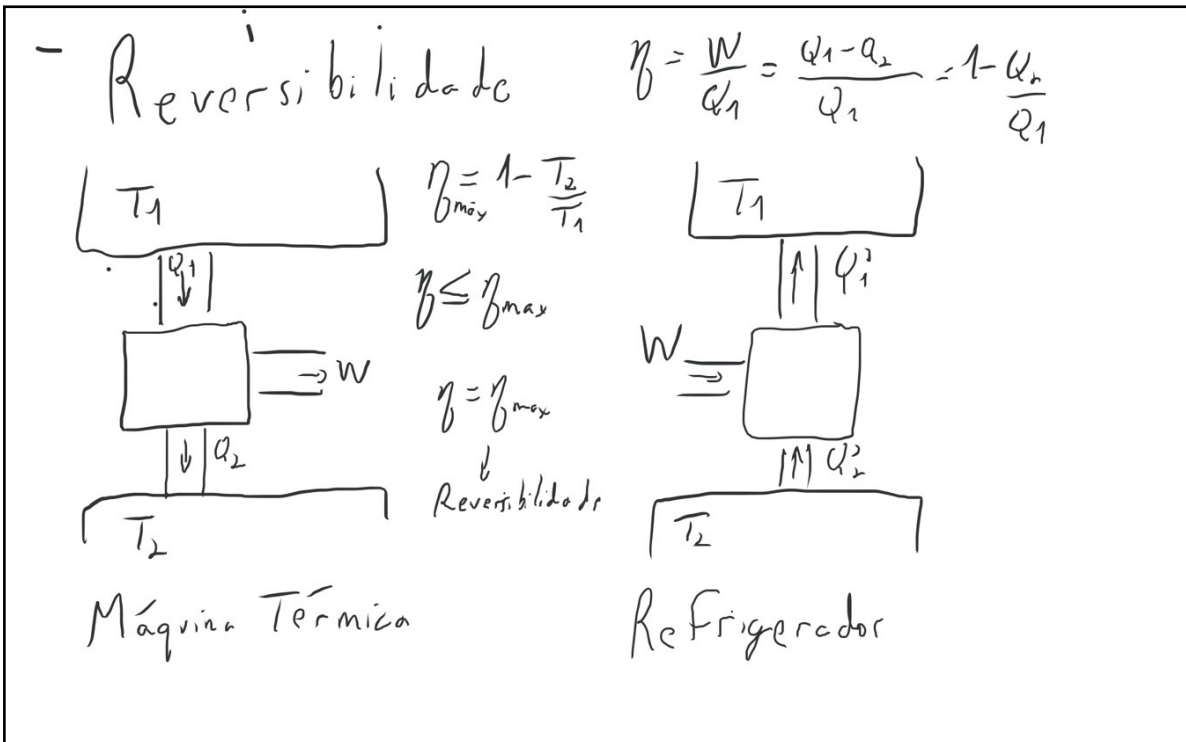 - Reversibilidade
η = W/Q1 = Q1-Q2/Q1 = 1-Q2/Q1
T1
Q1
W
Q2
T2
Máquina Térmica
ηmáx = 1-T2/T1
η ≤ ηmax
η = ηmax
↓
Reversibilidade
T1
Q1'
W
Q2'
T2
Refrigerador